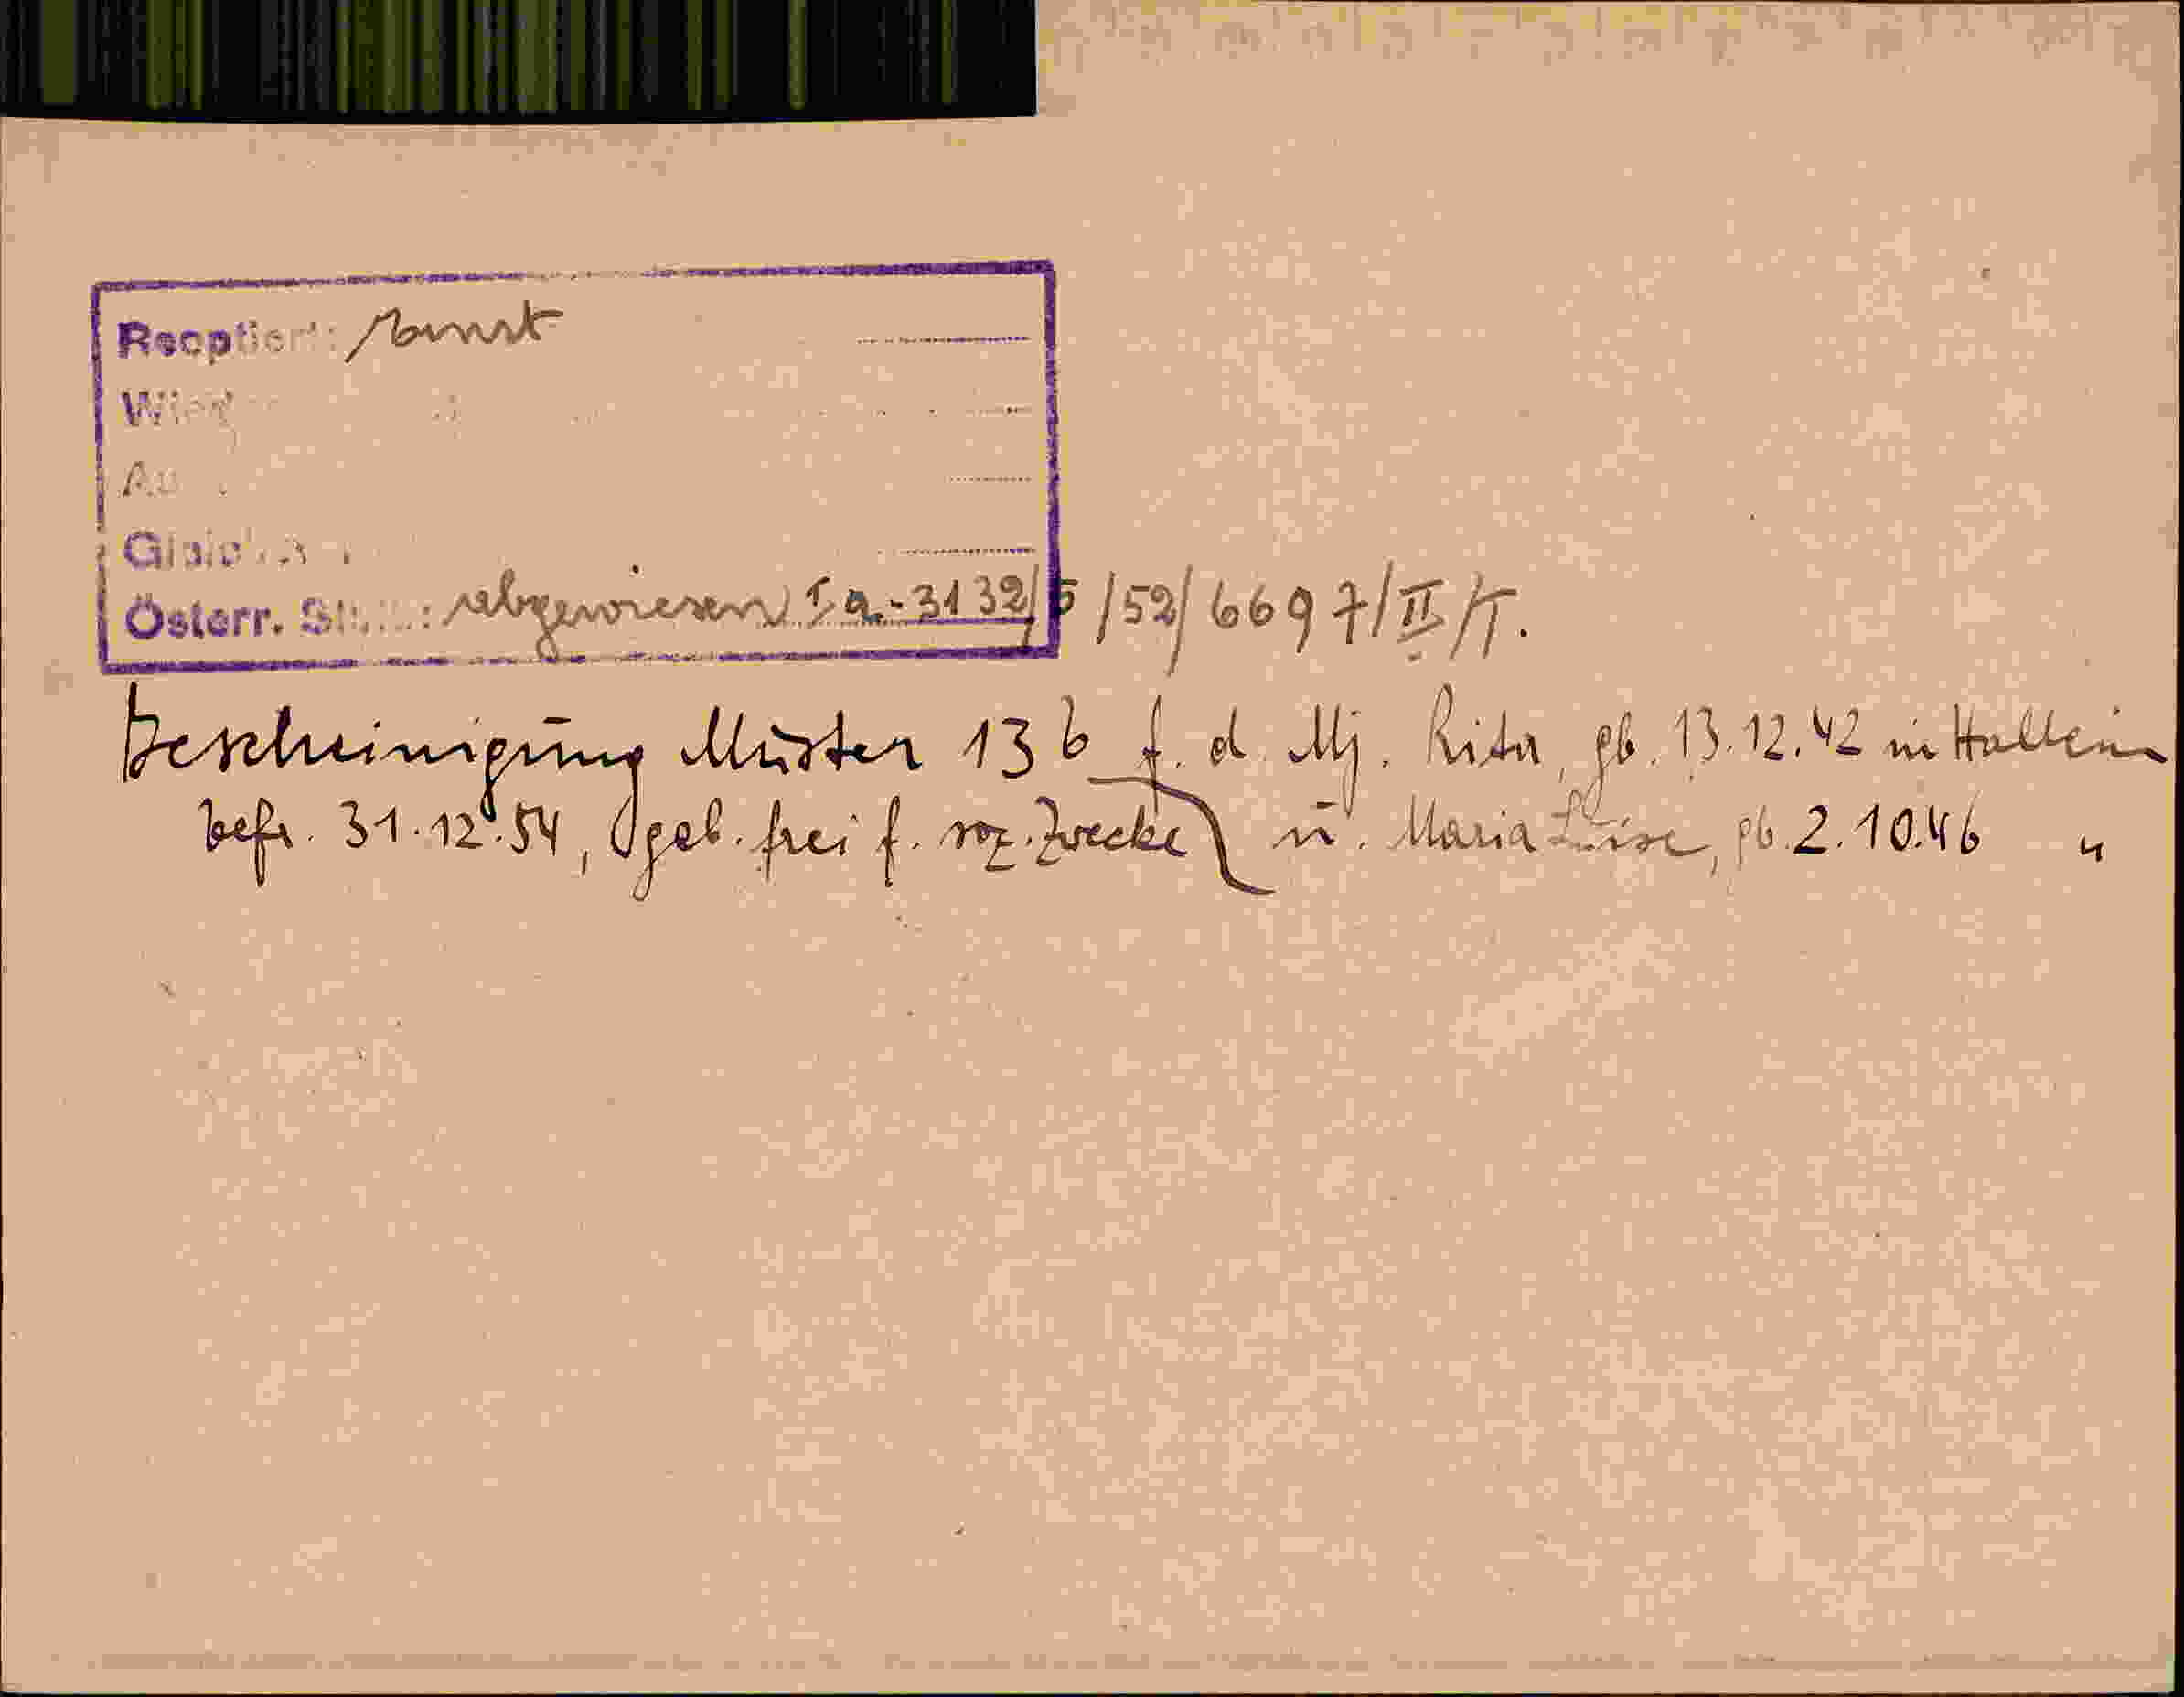 Österr. abgewiesen Ia-3132/5/52/6697/II/T.
Bescheinigung Muster 13 b f. d. Mj. Rita, gb. 13.12.42 in Hallein
befr. 31.12.54, geb. frei f. soz. Zwecke u. Maria Luise, gb. 2.10.46 "